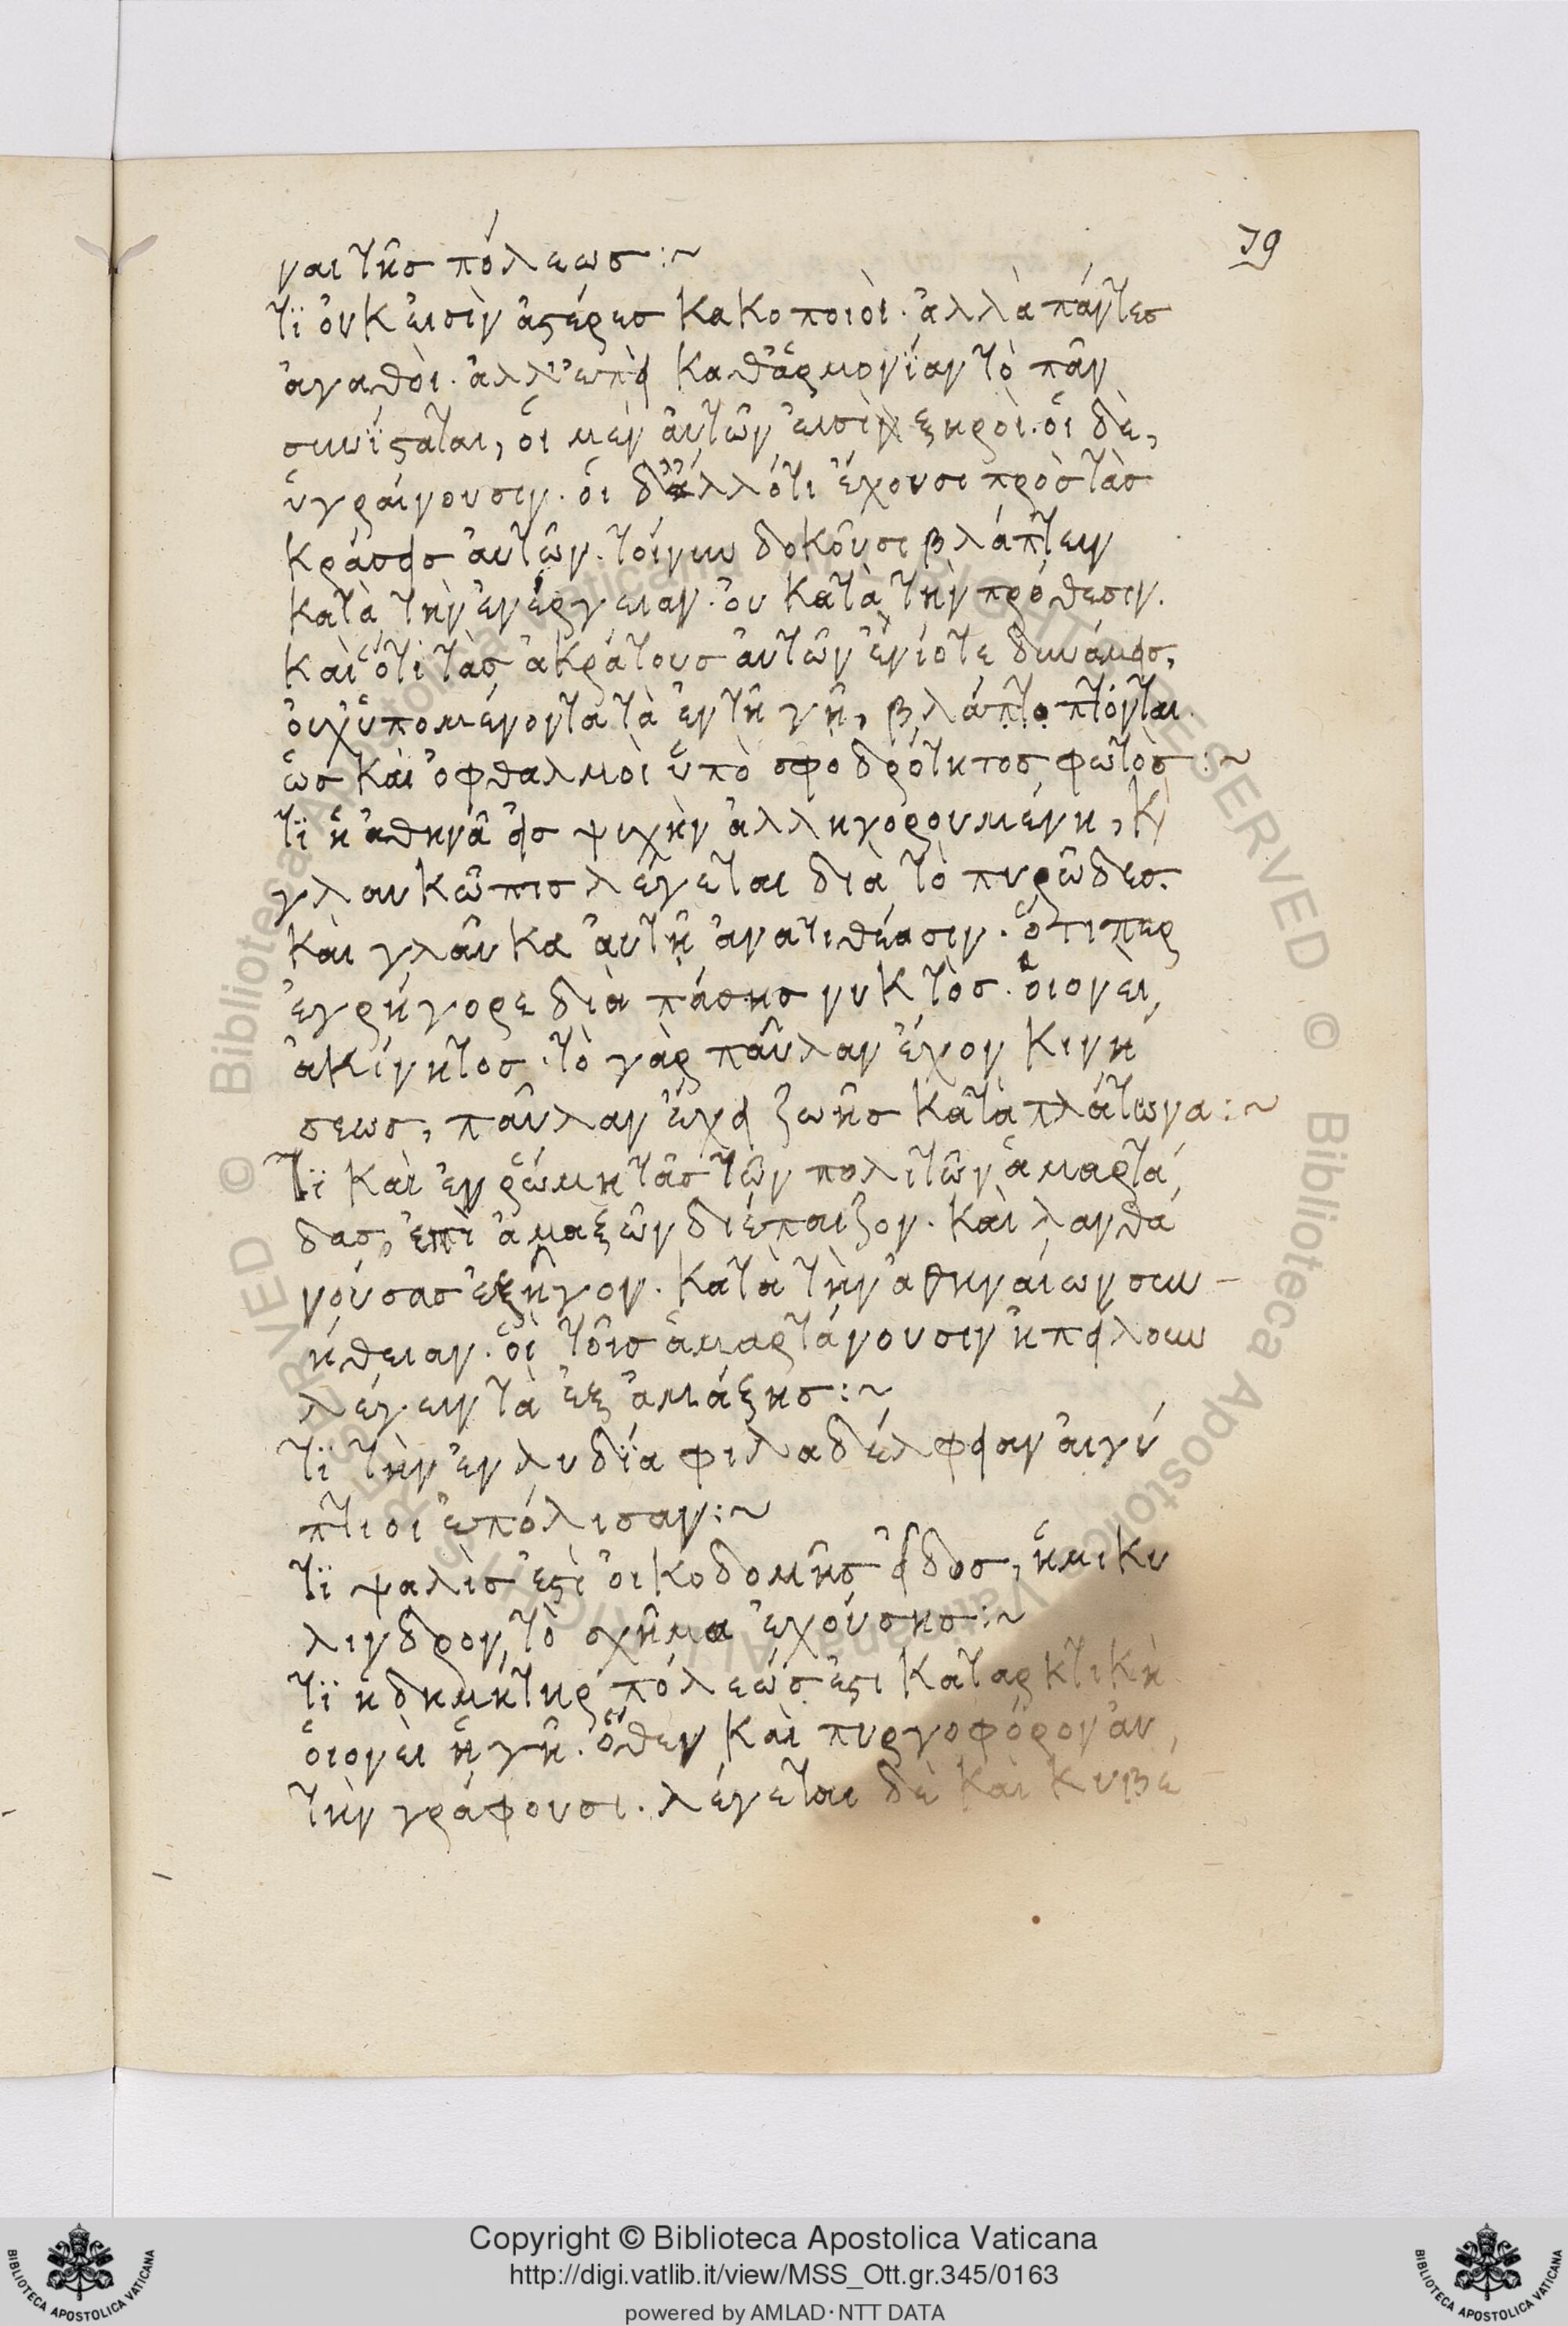 79
ναι τῆς πόλεως :~
τϊ ὀυκ ἐισὶν ἀστέρες κακοποιὸι· ἀλλὰ πάντες
ἀγαθὸι· ἀλλ' ἐπεὶ καθ' ἁρμονΐαν τὸ πᾶν
συνΐσταται, ὁι μὲν ἀυτῶν ἐισὶν ξηρὸι· ὁι δὲ,
ὑγραίνουσιν· ὁι δ' ἄλλό τι ἔχουσι πρὸς τὰς
κράσεις ἀυτῶν· τοίνυν δοκοῦσι βλάπτειν
κατὰ τὴν ἐνέργειαν· ὀυ κατὰ τὴν πρόθεσιν.
καὶ ὅτι τὰς ἀκράτους ἀυτῶν ἐνίοτε δυνάμεις,
ὀυχ' ὑπομένοντα τὰ ἐν τῆ γῆ, βλάπτοπτόνται.
ὡς καὶ ὀφθαλμοὶ ὑπὸ σφοδρότητος φωτὸς :~
τϊ ἡ ἀθηνᾶ εἰς ψυχὴν ἀλληγορουμένη, κ
γλαυκῶπις λέγεται διὰ τὸ πυρῶδες.
καὶ γλᾶυκα ἀυτῆ ἀνατιθέασιν· ὅτιπερ
ἐγρήγορε διὰ πάσης νυκτὸς· ὁιονει,
ἀκίνητος· τὸ γὰρ παῦλαν ἔχον κινή
σεως, παῦλαν ἔχει ζωῆς κατὰ πλάτωνα :~
τϊ καὶ ἐν ῥώμη τὰς τῶν πολιτῶν ἁμαρτά,
δας, ἐπὶ ἁμαξῶν διέπαιζον· καὶ λανθα
νούσας ἐξῆγον· κατὰ τὴν ἀθηναίων συν-
ήθειαν· ὁὶ τοῖς ἁμαρτάνουσιν ἠπείλουν
λέγειν τὰ ἐξ ἁμάξης :~
τϊ τὴν ἐν λυδΐα φιλαδέλφειαν ἀιγύ
πτιοι ἐπόλισαν :~
τϊ ψαλὶς ἐστὶ ὀικοδομῆς εἶδος, ἡμικυ
λινδρον τὸ σχῆμα ἐχούσης :~
τϊ ἡ δημήτηρ πόλεώς ἐστι καταρκτικὴ
ὁιονεὶ ἡ γῆ· ὅθεν καὶ πυργοφόρον ἀυ,
τὴν γράφουσι· λέγεται δὲ καὶ κυβέ
Copyright © Biblioteca Apostolica Vaticana
http://digi.vatlib.it/view/MSS_Ott.gr.345/0163
powered by AMLAD·NTT DATA